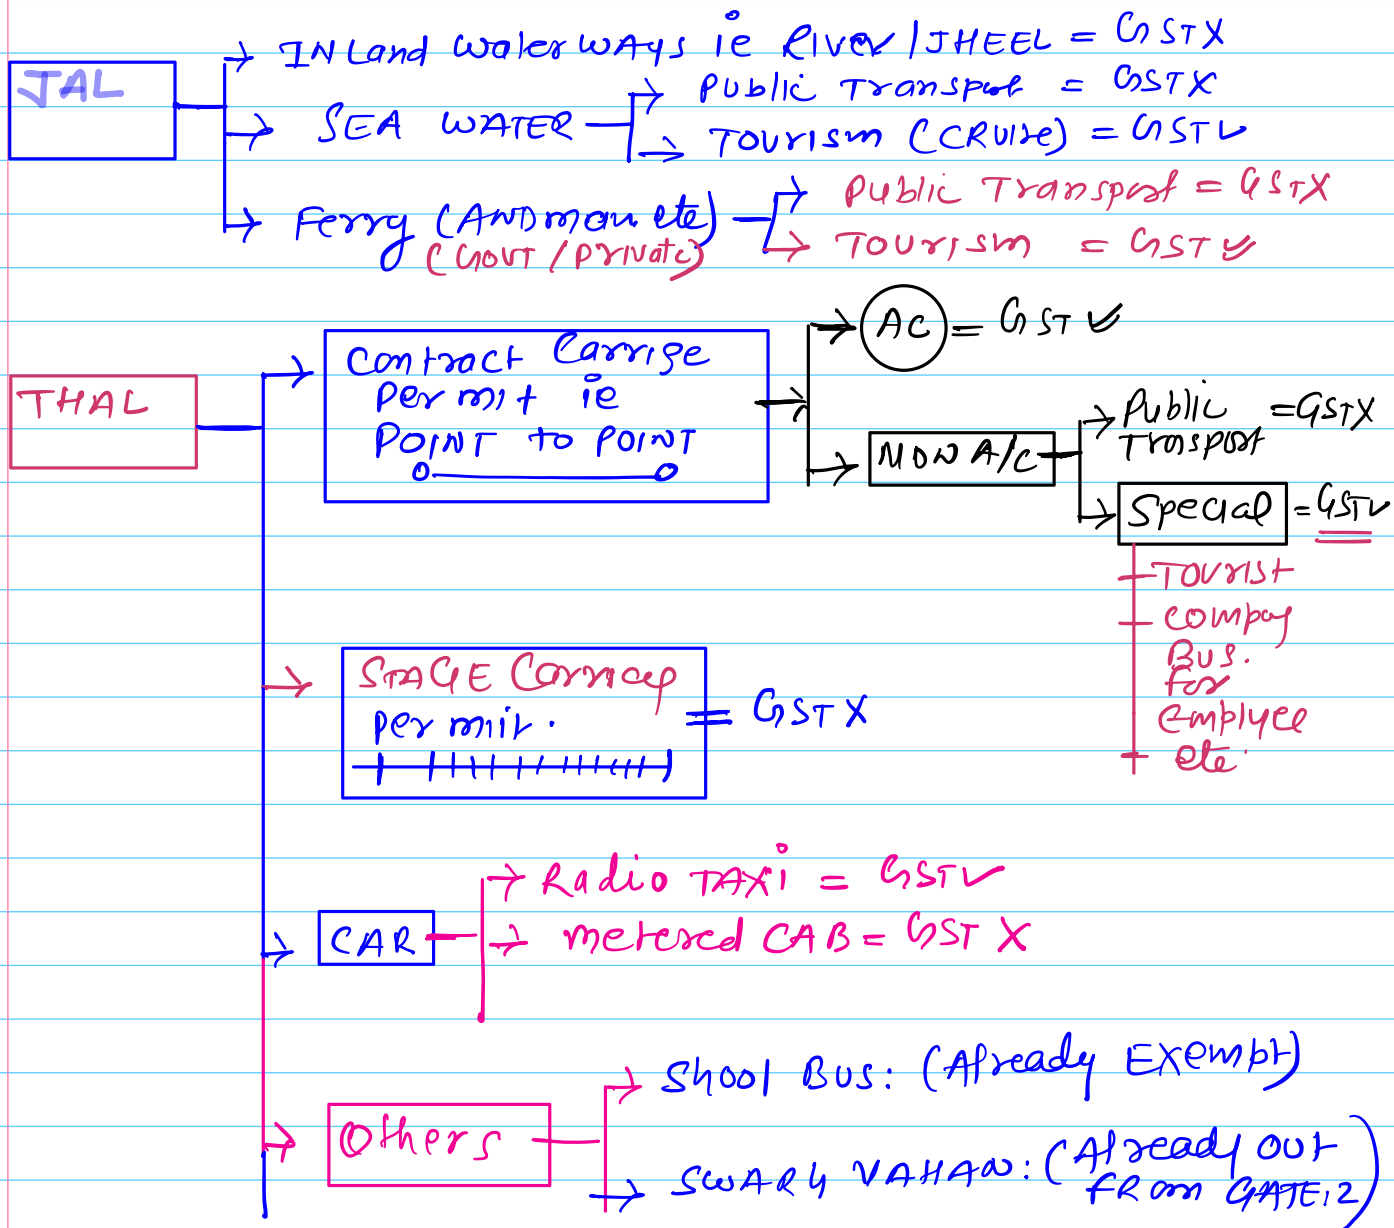 JAL
INLand waterways ie River/JHEEL = GSTX
SEA WATER
Public Transport = GSTX
TOURISM (CRUISE) = GST✓
Ferry (ANDMAN etc)
(GOVT / Private)
Public Transport = GSTX
TOURISM = GST✓
THAL
Contract Carrige
Permit ie
POINT to POINT
AC = GST✓
NON A/C
Public = GSTX
Transport
Special = GST✓
Tourist
compay
Bus.
for
emplyee
etc.
STAGE Carriage
permit. = GST X
CAR
Radio TAXI = GST✓
metered CAB = GST X
Others
Shool BUS: (Already Exempt)
SWARG VAHAN: (Already out
from GATE 1,2)